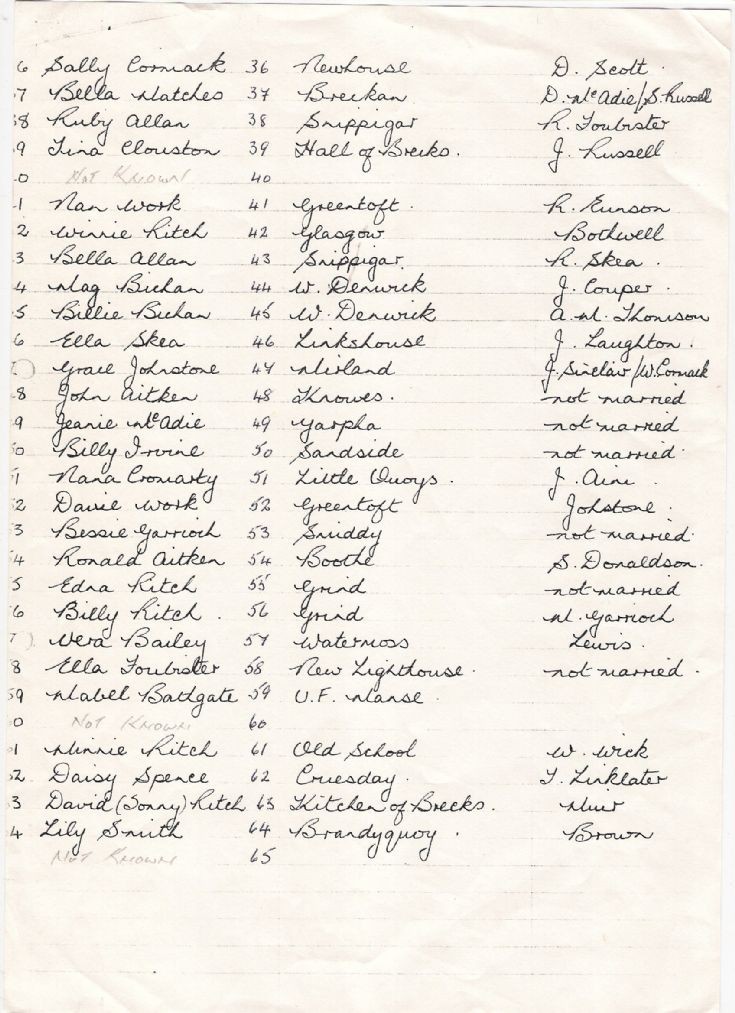 6 Sally Cormack 36 Newhouse D. Scott.
37 Bella Matches 37 Breckan D. McAdie/S. Russell
38 Ruby Allan 38 Snippigar R. Foubister
9 Tina Clouston 39 Hall of Brecks. J. Russell
0 NOT KNOWN 40
1 Nan Work 41 Greentoft. R. Eunson
2 Winnie Ritch 42 Glasgow Bothwell
3 Bella Allan 43 Snippigar. R. Skea.
4 Mag Bichan 44 W. Denwick J. Couper.
5 Billie Bichan 45 W. Denwick A. M. Thomson
6 Ella Skea 46 Linkshouse J. Laughton.
Grace Johnstone 47 Mirland J. Sinclair/W. Cormack
8 John Aitken 48 Knowes. not married
9 Jeanie McAdie 49 Yarpha not married
50 Billy Irvine 50 Sandside not married.
51 Nana Cromarty 51 Little Quoys. J.
52 Davie Work 52 Greentoft Johstone.
53 Bessie Garrioch 53 Smiddy not married.
54 Ronald Aitken 54 Boothe S. Donaldson.
5 Edna Ritch 55 Grind not married
56 Billy Ritch. 56 Grind M. Garrioch
7) Vera Bailey 57 Watermoss Lewis.
8 Ella Foubister 58 New Lighthouse. not married.
59 Mabel Bathgate 59 U.F. Manse.
0 NOT KNOWN 60
61 Minnie Ritch 61 Old School W. Wick
52 Daisy Spence 62 Cruesday. T. Linklater
3 David (Sonny) Ritch 63 Kitchen of Brecks. Muir
4 Lily Smith 64 Brandyquoy. Brown
NOT KNOWN 65